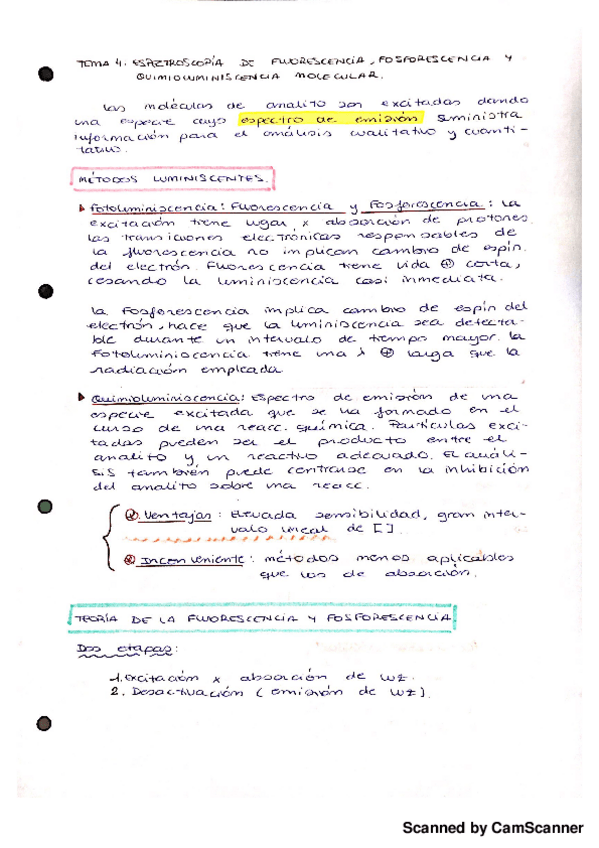 TEMA 4. ESPECTROSCOPÍA DE FLUORESCENCIA, FOSFORESCENCIA Y
QUIMIOLUMINISCENCIA MOLECULAR.
Las moléculas de analito son excitadas dando
una especie cuyo espectro de emisión suministra
información para el análisis cualitativo y cuanti-
tativo.
MÉTODOS LUMINISCENTES.
Fotoluminiscencia: Fluorescencia y Fosforescencia: la
excitación tiene lugar x absorción de protones.
Las transiciones electrónicas responsables de
la fluorescencia no implican cambio de espín
del electrón. Fluorescencia tiene vida ⊕ corta,
cesando la luminiscencia casi inmediata.
La Fosforescencia implica cambio de espín del
electrón, hace que la luminiscencia sea detecta-
ble durante un intervalo de tiempo mayor. La
Fotoluminiscencia tiene una λ ⊕ larga que la
radiación empleada.
Quimioluminiscencia: Espectro de emisión de una
especie excitada que se ha formado en el
curso de una reacc. química. Partículas exci-
tadas pueden ser el producto entre el
analito y un reactivo adecuado. El análi-
sis también puede centrarse en la inhibición
del analito sobre una reacc.
Ventajas: Elevada sensibilidad, gran inter-
valo lineal de [ ].
Inconveniente: métodos menos aplicables
que los de absorción.
TEORÍA DE LA FLUORESCENCIA Y FOSFORESCENCIA
Dos etapas:
1. Excitación x absorción de luz.
2. Desactivación (emisión de luz).
Scanned by CamScanner